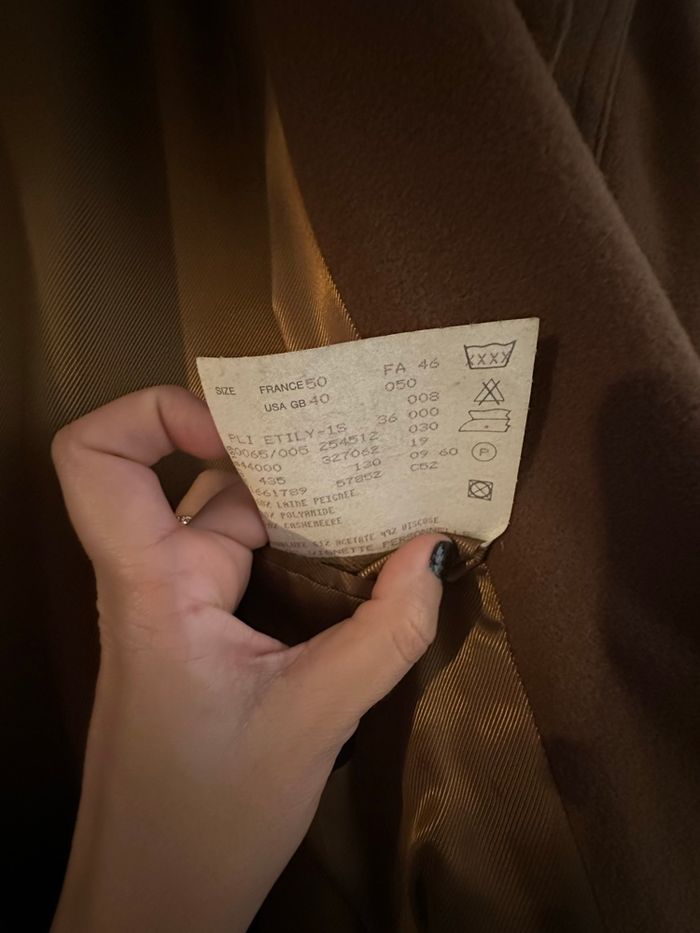 SIZE FRANCE 50 FA 46
USA GB 40 050
008
PLI ETILY-1S 36 000
0065/005 254512 030
44000 327062 19
435 130 09 60
661789 57852 C52
LAINE PEIGNEE
POLYAMIDE
CASHEMEERE
51% ACETATE 49% VISCOSE
VIGNETTE
XXXX
P